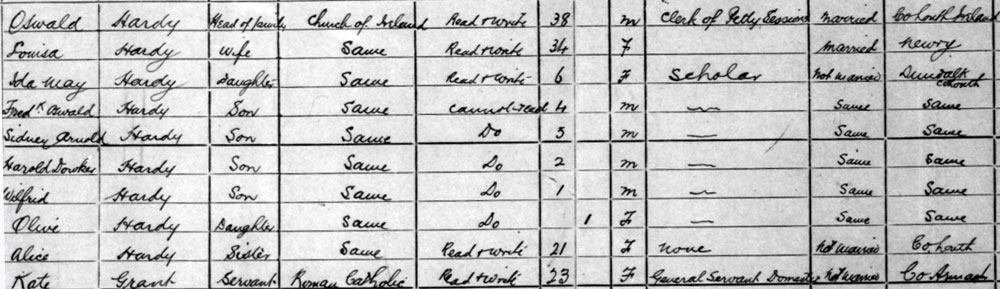 Oswald Hardy Head of family Church of Ireland Read & write 38 m Clerk of Petty Sessions married Co Louth Ireland
Louisa Hardy Wife Same Read & write 34 F married Newry
Ida May Hardy Daughter Same Read & write 6 F Scholar Not married Dundalk Co Louth
Fredk. Oswald Hardy Son Same cannot read 4 m — Same Same
Sidney Arnold Hardy Son Same Do 3 m — Same Same
Harold Hardy Son Same Do 2 m — Same Same
Wilfrid Hardy Son Same Do 1 m — Same Same
Olive Hardy Daughter Same Do 1 F — Same Same
Alice Hardy Sister Same Read & write 21 F none Not married Co Louth
Kate Grant Servant Roman Catholic Read & write 23 F General Servant Domestic Not married Co Armagh